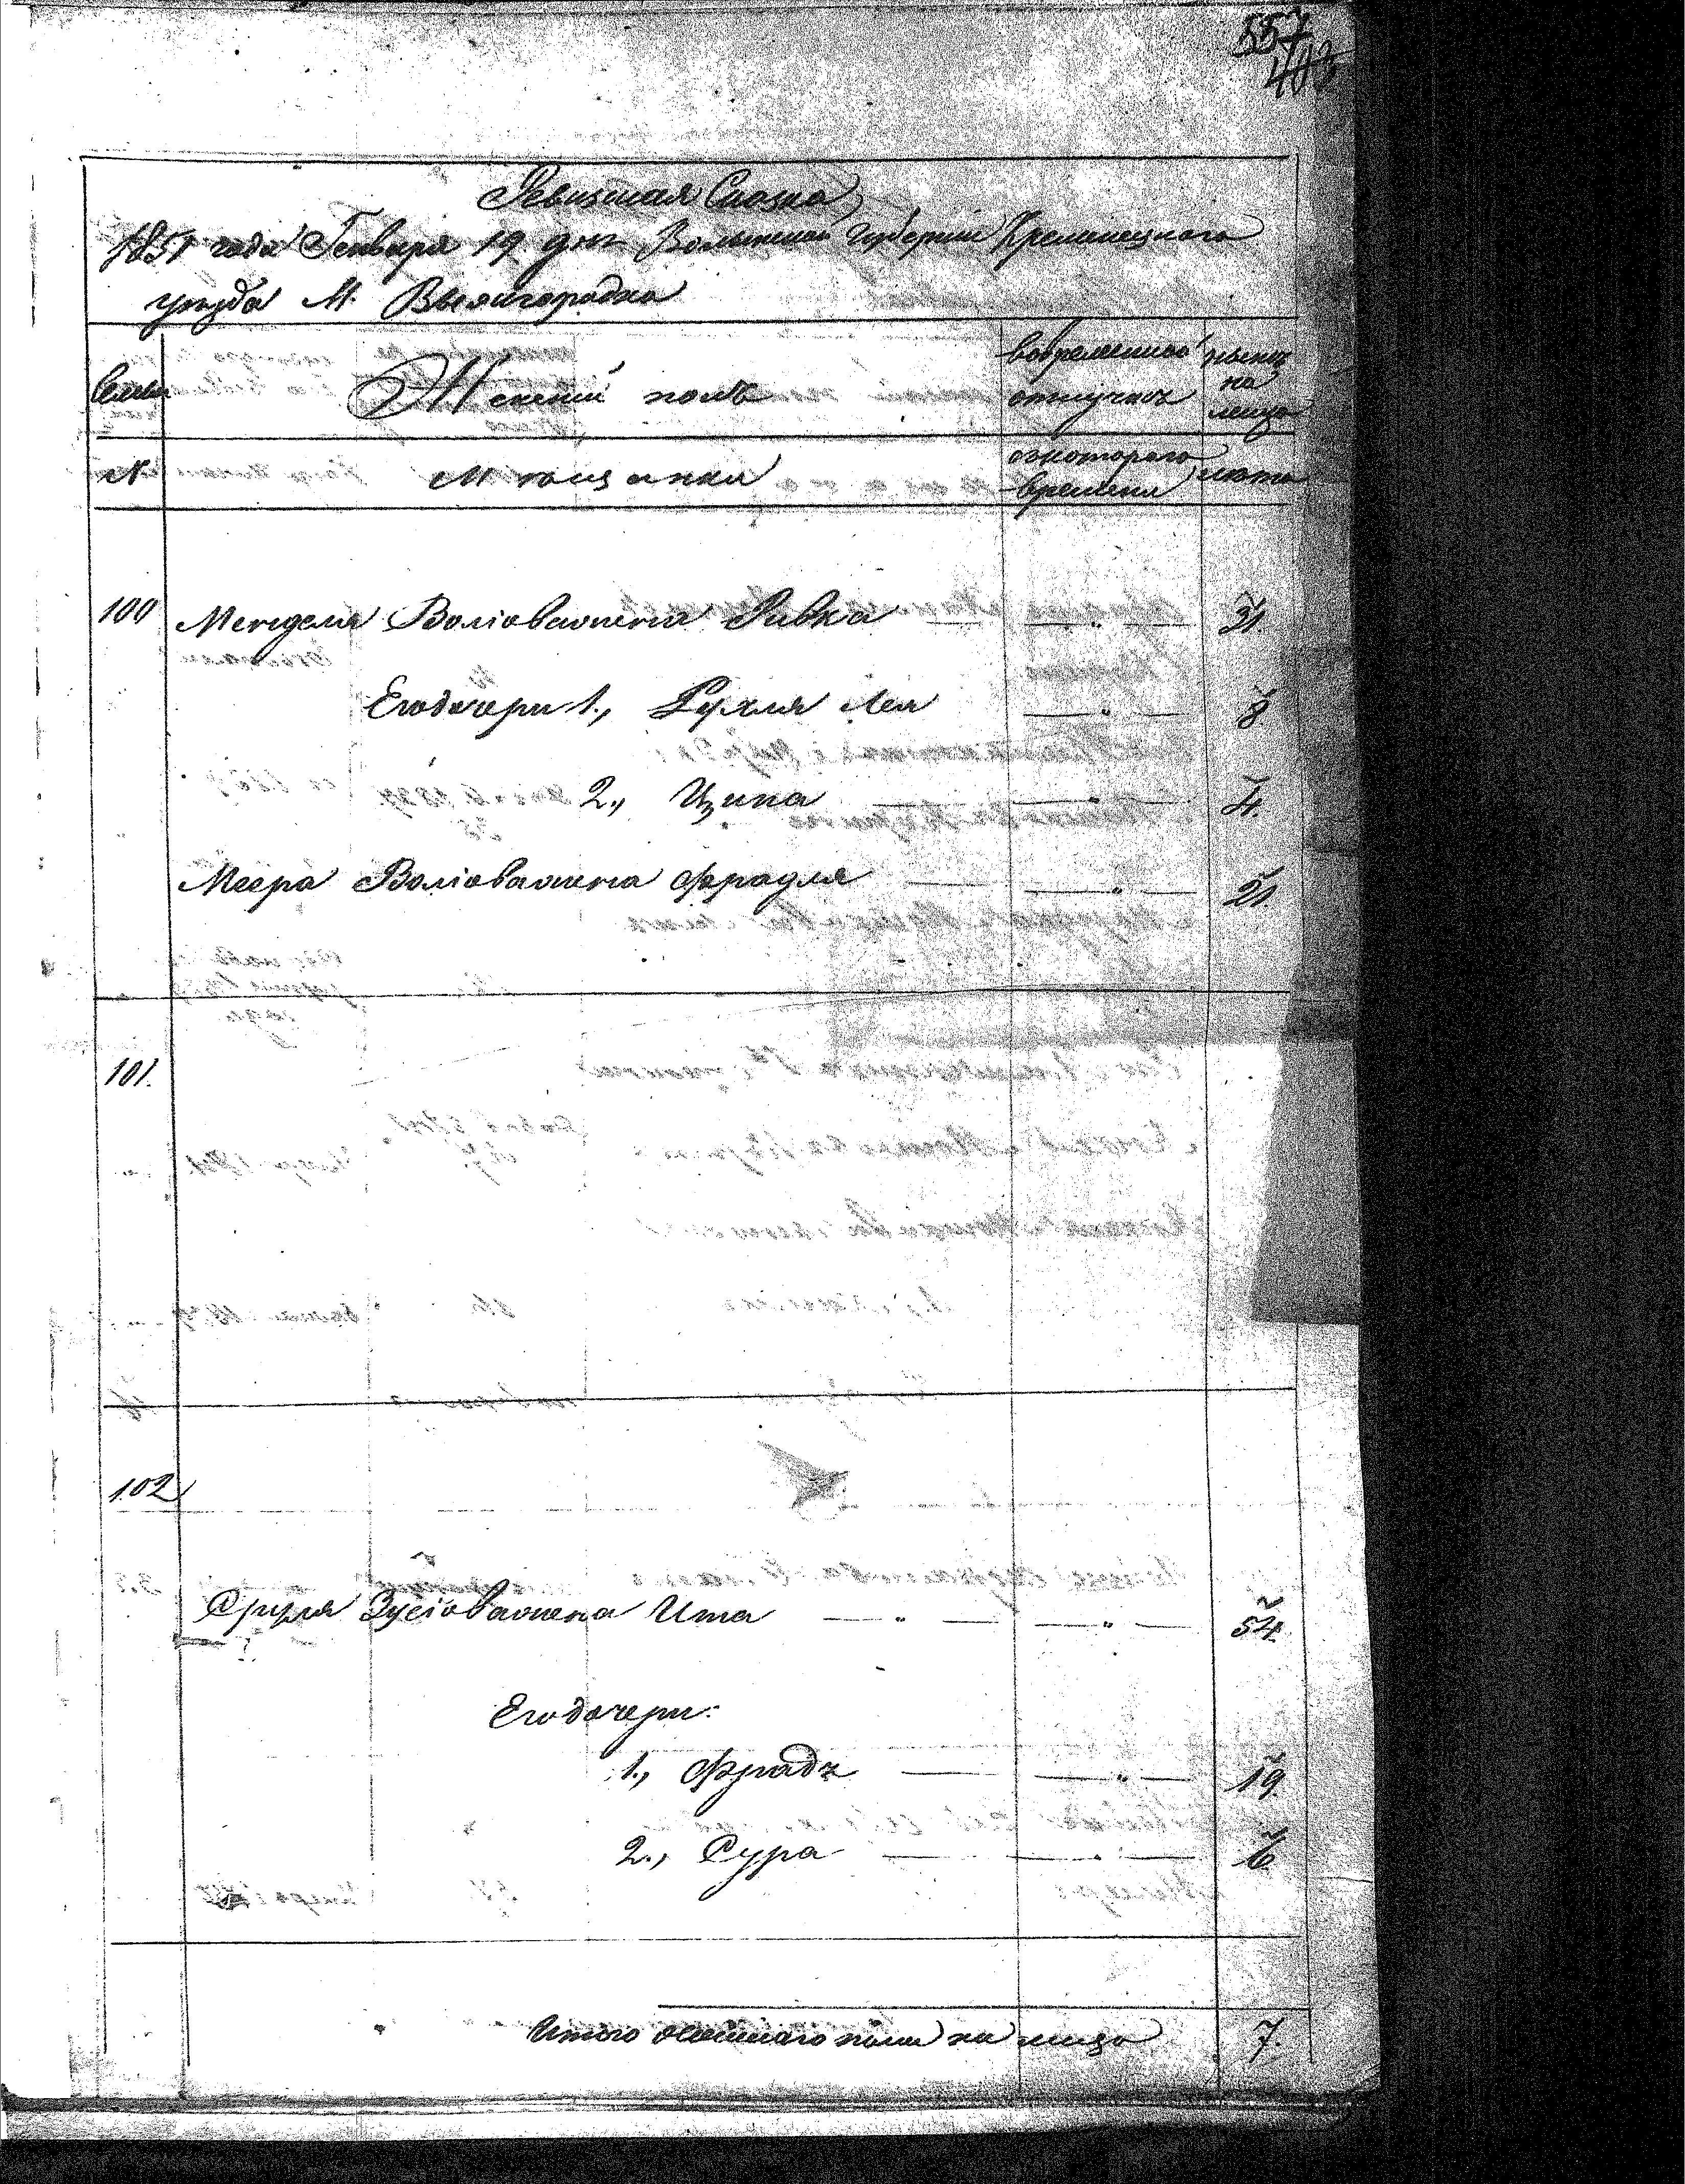 557
403
Ревизская Сказка
1851 года Генваря 19 дня Волынской Губернии Кременецкаго
уезда М. Вышгородка
Семьи
Женский полъ
вовременной отлучке
ныне на лицо
№
Мещанки
скотораго времени
лета
100 Менделя Волiова жена Ривка — " — 31.
Его дочери 1., Рухля Лея — " — 8
2., Ципа — " — 4.
Меера Волiова жена Фрадля — " — 21.
101.
102
Сруля Зусiова жена Ита — " — — " — 54.
Его дочери:
1., Фрадя — " — 19.
2., Сура — " — 6.
Итого женскаго пола на лицо 7.